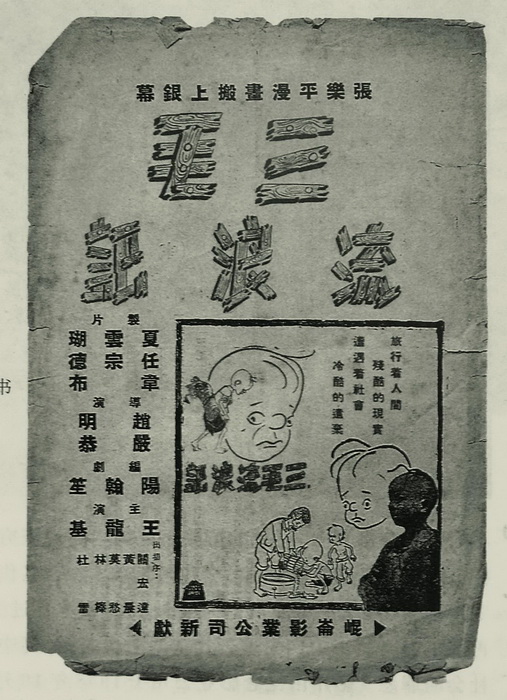 張樂平漫畫搬上銀幕
三毛
流浪記
製片
夏雲瑚
任宗德
韋布
導演
趙明
嚴恭
編劇
陽翰笙
主演
王龍基
出場序：
關宏達
黃晨
英愁
林榛
杜雷
旅行着人間
殘酷的現實
遭遇着社會
冷酷的遺棄
三毛流浪記
崐崙影業公司新獻
书